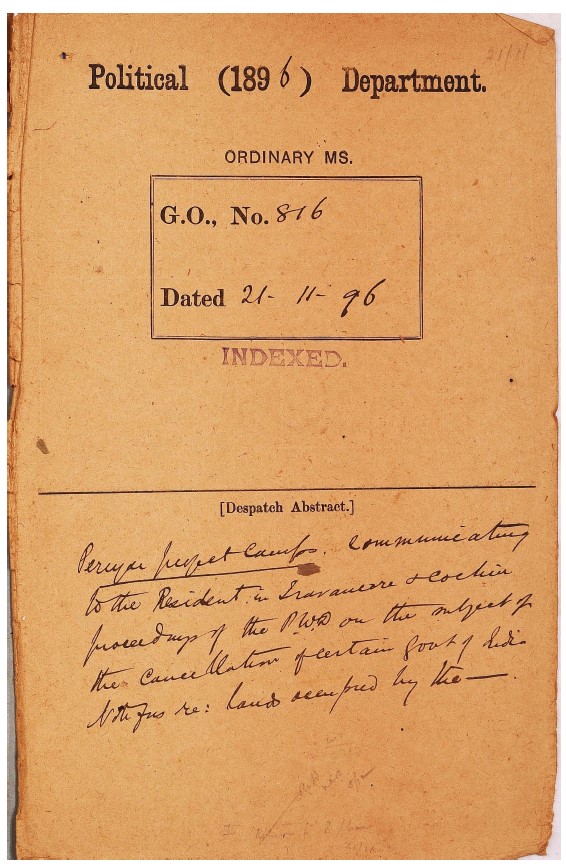 21/11
Political (1896) Department.
ORDINARY MS.
G.O., No. 816
Dated 21- 11- 96
INDEXED.
[Despatch Abstract.]
Periyar project Camps. Communicating
to the Resident in Travancore & Cochin
proceedings of the P.W.D on the subject of
the Cancellation of certain Govt of India
Notifns re: lands occupied by the —.